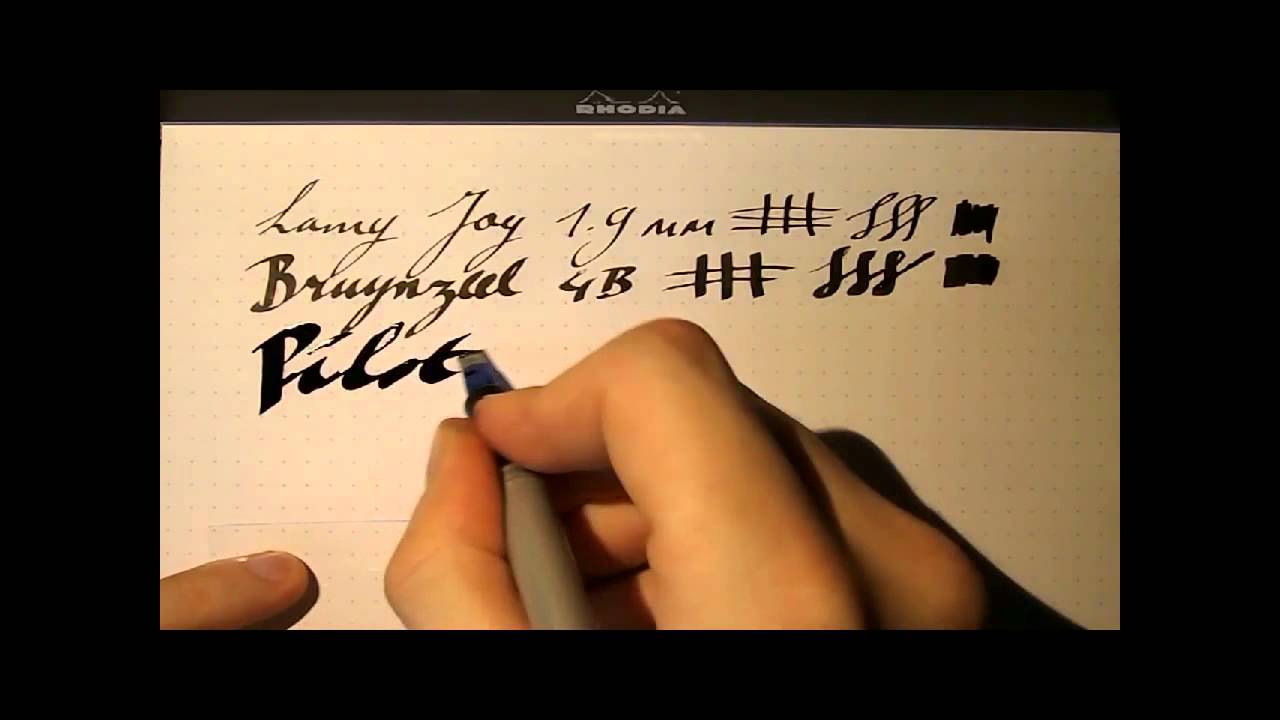 RHODIA
Lamy Joy 1.9 mm
Bruynzeel 4B
Pilot